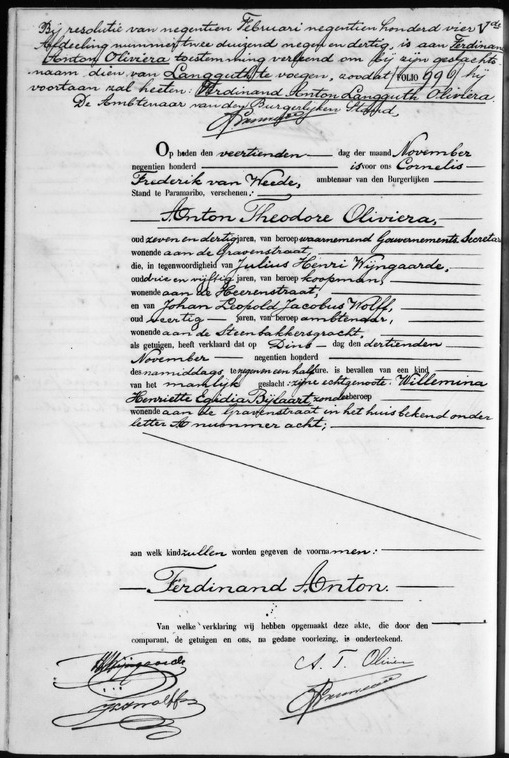 Bij resolutie van negentien Februari negentien honderd vier
Afdeeling nummer twee duizend negen en dertig, is aan Ferdinand
Anton Oliviera toestemming verleend om bij zijn geslachts
naam, dien van Langguth te voegen, zoodat hij
FOLIO 99
voortaan zal heeten: Ferdinand Anton Langguth Oliviera.
De Ambtenaar van den Burgerlijken Stand,
Op heden den veertienden dag der maand November
negentien honderd is voor ons Cornelis
Frederik van Weede, ambtenaar van den Burgerlijken
Stand te Paramaribo, verschenen:
Anton Theodore Oliviera,
oud zeven en dertig jaren, van beroep waarnemend Gouvernements Secretaris
wonende aan de Gravenstraat,
die, in tegenwoordigheid van Julius Henri Wijngaarde,
oud drie en vijftig jaren, van beroep koopman,
wonende aan de Heerenstraat,
en van Johan Leopold Jacobus Wolff,
oud veertig jaren, van beroep ambtenaar,
wonende aan de Steenbakkersgracht,
als getuigen, heeft verklaard dat op Dins dag den dertienden
November negentien honderd
des namiddags, te negen en een half ure. is bevallen van een kind
van het manlijk geslacht: zijne echtgenoote: Willemina
Henriette Egidia Bijlaart, zonder beroep
wonende aan de Gravenstraat in het huis bekend onder
letter A nummer acht;
aan welk kind zullen worden gegeven de voornamen:
Ferdinand Anton.
Van welke verklaring wij hebben opgemaakt deze akte, die door den
comparant, de getuigen en ons, na gedane voorlezing, is onderteekend.
Wijngaarde
A. T. Olivier